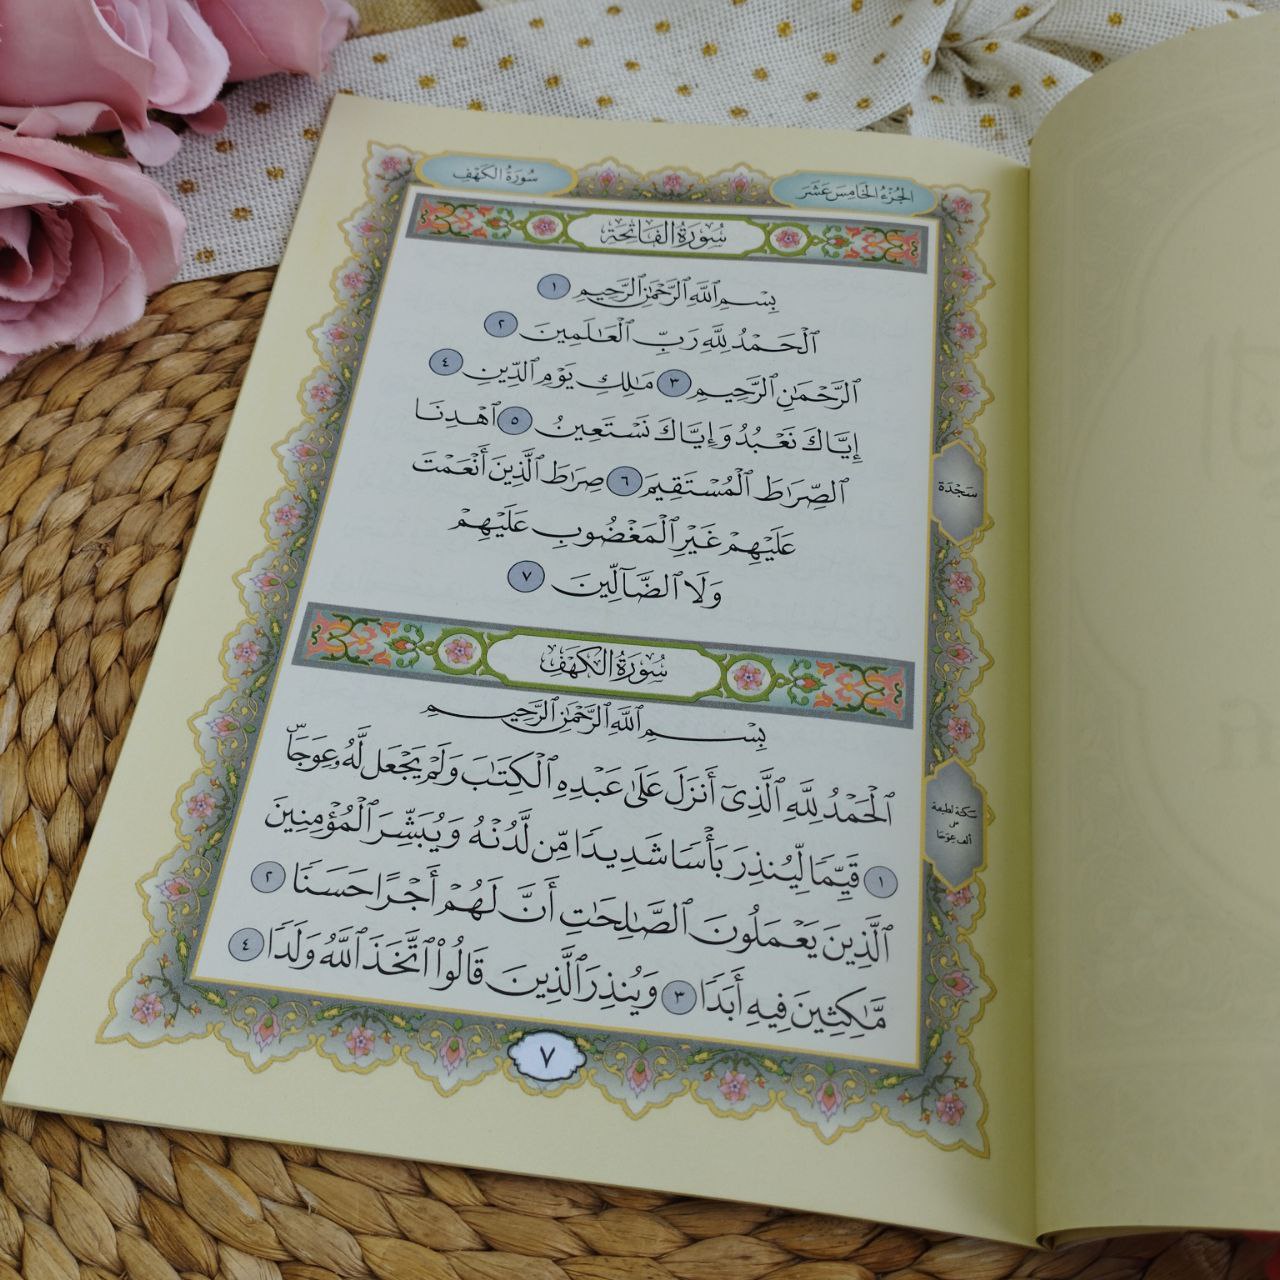 الجُزْءُ الخَامِسَ عَشَرَ
سُورَةُ الكَهْفِ
سُورَةُ الفَاتِحَةِ
بِسْمِ ٱللَّهِ ٱلرَّحْمَٰنِ ٱلرَّحِيمِ ١
ٱلْحَمْدُ لِلَّهِ رَبِّ ٱلْعَٰلَمِينَ ٢
ٱلرَّحْمَٰنِ ٱلرَّحِيمِ ٣ مَٰلِكِ يَوْمِ ٱلدِّينِ ٤
إِيَّاكَ نَعْبُدُ وَإِيَّاكَ نَسْتَعِينُ ٥ ٱهْدِنَا
ٱلصِّرَٰطَ ٱلْمُسْتَقِيمَ ٦ صِرَٰطَ ٱلَّذِينَ أَنْعَمْتَ
عَلَيْهِمْ غَيْرِ ٱلْمَغْضُوبِ عَلَيْهِمْ
وَلَا ٱلضَّآلِّينَ ٧
سَجْدَة
سُورَةُ الكَهْفِ
بِسْمِ ٱللَّهِ ٱلرَّحْمَٰنِ ٱلرَّحِيمِ
ٱلْحَمْدُ لِلَّهِ ٱلَّذِىٓ أَنزَلَ عَلَىٰ عَبْدِهِ ٱلْكِتَٰبَ وَلَمْ يَجْعَل لَّهُۥ عِوَجَاۜ
١ قَيِّمًا لِّيُنذِرَ بَأْسًا شَدِيدًا مِّن لَّدُنْهُ وَيُبَشِّرَ ٱلْمُؤْمِنِينَ
ٱلَّذِينَ يَعْمَلُونَ ٱلصَّٰلِحَٰتِ أَنَّ لَهُمْ أَجْرًا حَسَنًا ٢
مَّٰكِثِينَ فِيهِ أَبَدًا ٣ وَيُنذِرَ ٱلَّذِينَ قَالُوا۟ ٱتَّخَذَ ٱللَّهُ وَلَدًا ٤
سكتة لطيفة
على
ألف عوجا
٧